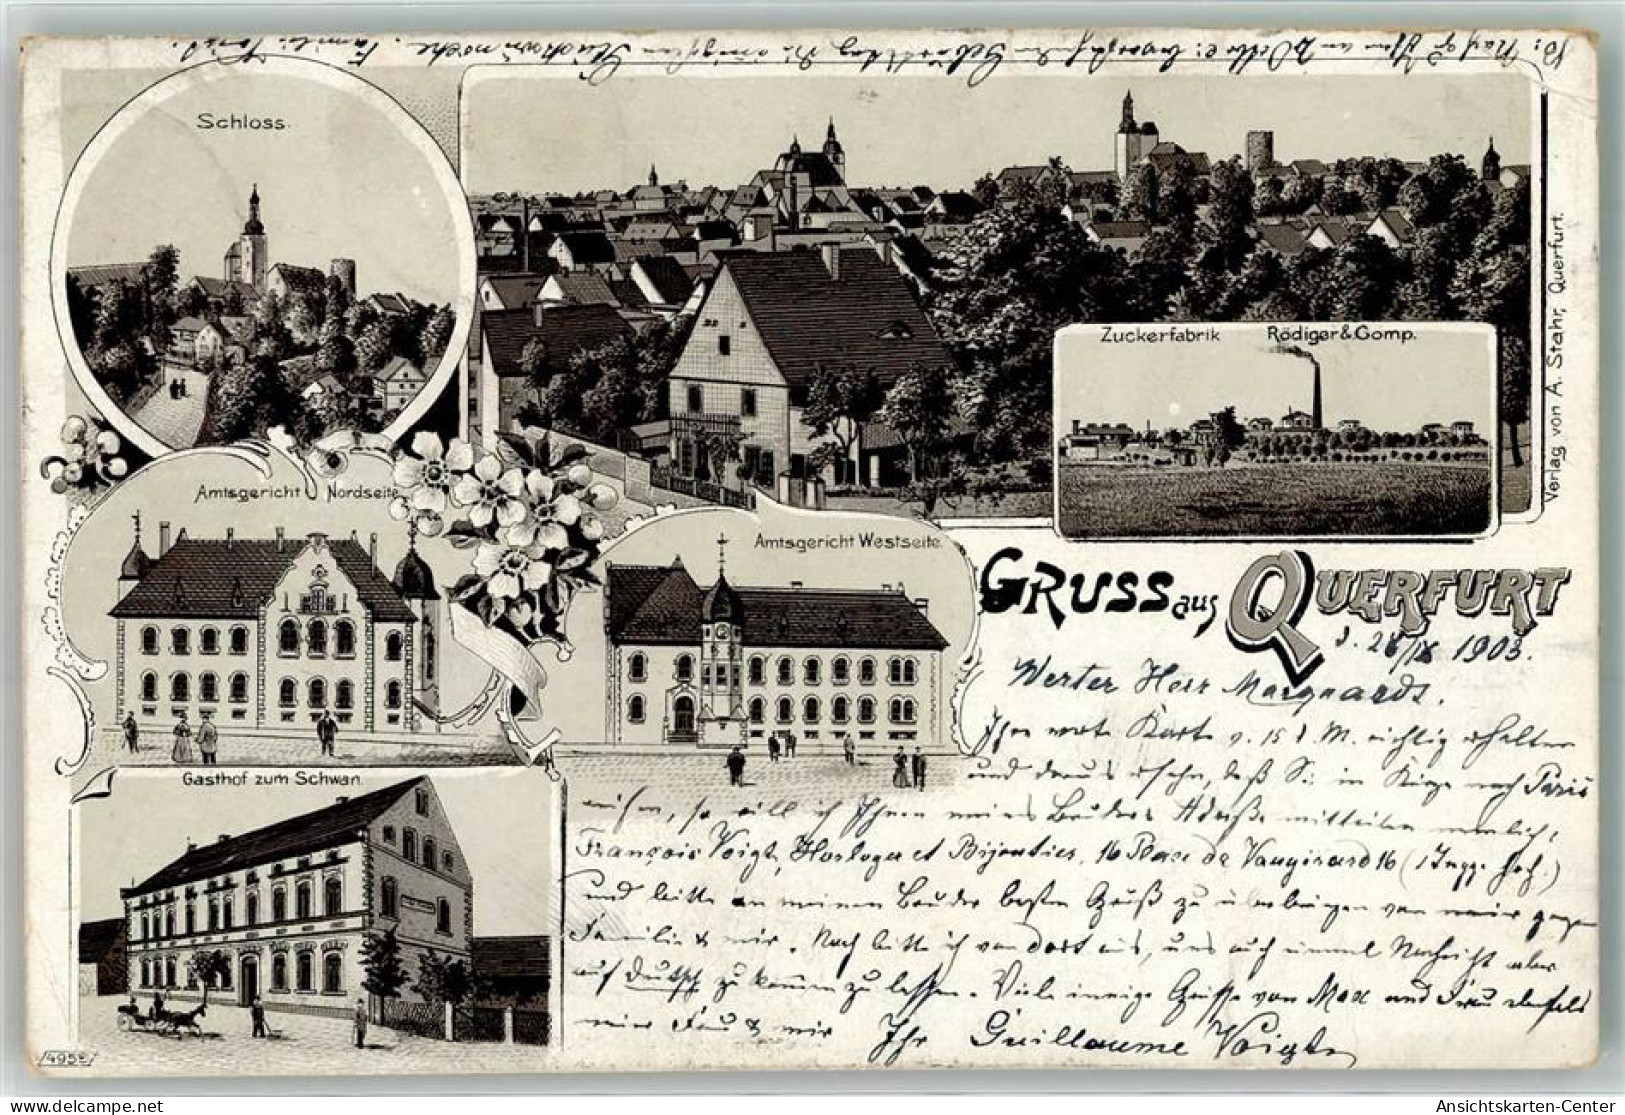 Schloss.
Zuckerfabrik Rödiger & Comp.
Verlag von A. Stahr, Querfurt.
Amtsgericht Nordseite.
Amtsgericht Westseite.
Gruss aus Querfurt
1903.
Werter Herr
Ihre werte Karte v. 15 d. M. richtig erhalten
und daraus ersehn, daß Sie in Kürze nach Paris
so will ich Ihnen meines Bruders Adreße mitteilen nemlich,
François Voigt, Horloger et Bijoutier, 16 Place de Vaugirard 16
und bitte an meinen Bruder besten Gruß zu überbringen von meiner ganzen
Familie & mir. Noch bitte ich von dort aus, uns auch einmal Nachricht aber
auf Deutsch zu kommen zu lassen. Viele innige Grüsse von Max und Frau ebenfals
meine Frau & mir Ihr Guillaume Voigt
Gasthof zum Schwan.
4952
Ansichtskarten-Center